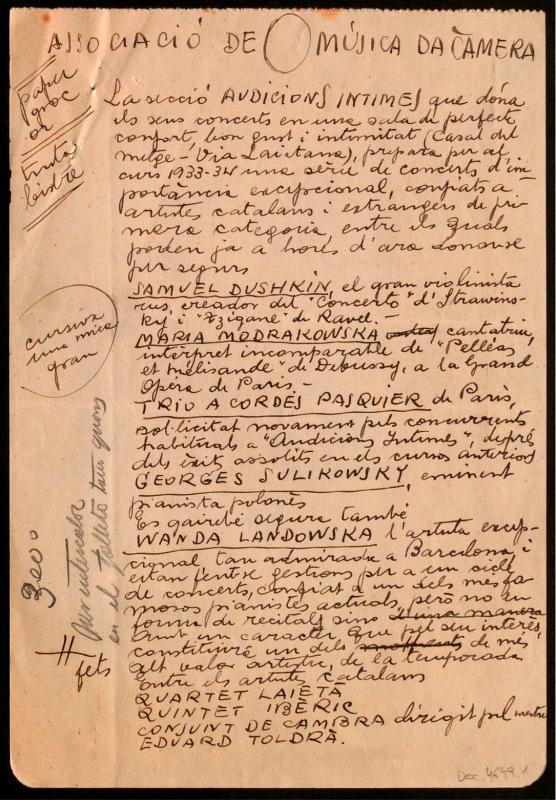 ASSOCIACIÓ DE MÚSICA DA CAMERA
paper
groc
or
tinta
bistre
La secció AUDICIONS INTIMES que dóna
els seus concerts en una sala de perfecte
confort, bon gust i intimitat (Casal del
metge - Via Laietana), prepara per al
curs 1933-34 una sèrie de concerts d'im
portància excepcional, confiats a
artistes catalans i estrangers de pri
mera categoria, entre els quals
poden ja a hores d'ara donar-se
per segurs
SAMUEL DUSHKIN, el gran violinista
rus, creador del "Concerto" d'Strawins-
ky i "Tzigane" de Ravel.-
MARIA MODRAKOWSKA cantatriu,
intèrpret incomparable de "Pelléas
et Melisande" de Debussy, a la Grand
Opéra de Paris.-
TRIO A CORDES PASQUIER de Paris,
sol·licitat novament pels concurrents
habituals a "Audicions Intimes", després
dels èxits assolits en els cursos anteriors
GEORGES SULIKOWSKY, eminent
pianista polonès
Es gairebé segura també
WANDA LANDOWSKA l'artista excep-
cional tan admirada a Barcelona, i
estan fent-se gestions per a un cicle
de concerts, confiat a un dels més fa
mosos pianistes actuals, però no en
forma de recitals sino d'una manera
amb un caracter que pel seu interés
constituirà un dels de més
alt valor artistic, de la temporada
Entre els artistes catalans
QUARTET LAIETÀ
QUINTET IBÈRIC
CONJUNT DE CAMBRA dirigit pel mestre
EDUARD TOLDRÀ.
cursiva
una mica
gran
300
per intercalar
en el fulletó
fets
Doc. 4649.1